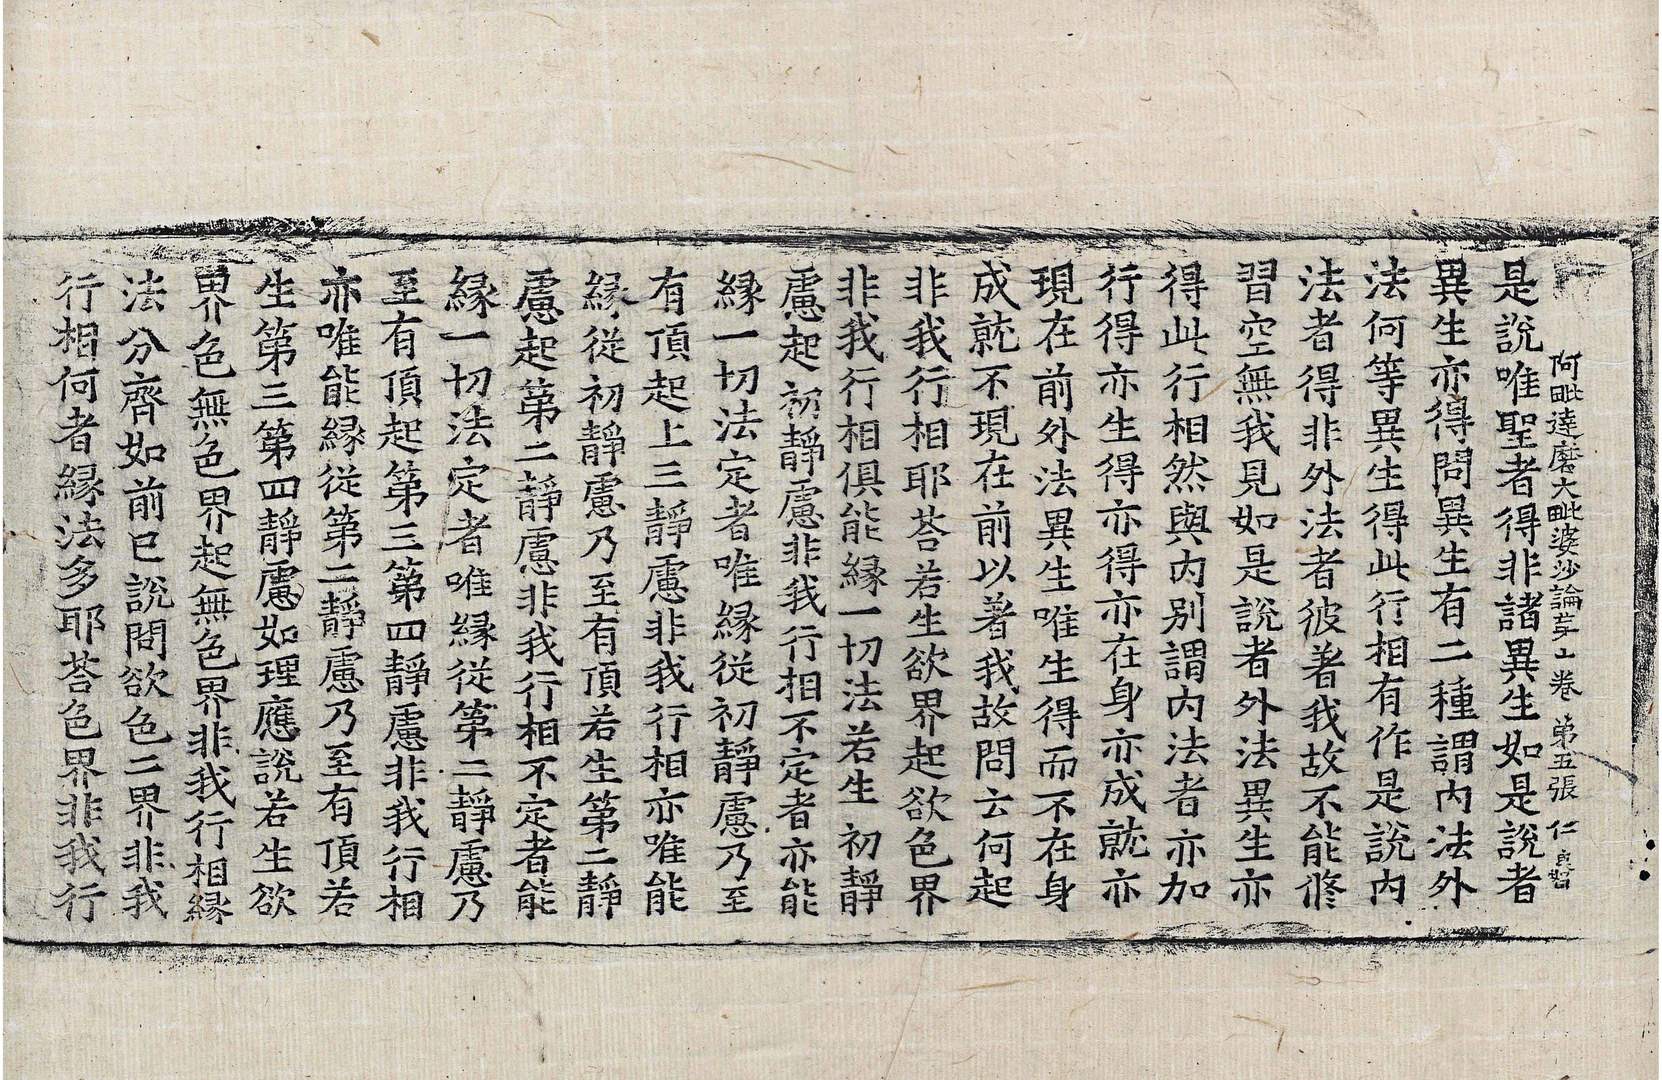 阿毗達磨大毗婆沙論苐山卷 第五張 仁
是說唯聖者得非諸異生如是說者
異生亦得問異生有二種謂內法外
法何等異生得此行相有作是說內
法者得非外法者彼著我故不能修
習空無我見如是說者外法異生亦
得此行相然與內別謂內法者亦加
行得亦生得亦得亦在身亦成就亦
現在前外法異生唯生得而不在身
成就不現在前以著我故問云何起
非我行相耶荅若生欲界起欲色界
非我行相俱能緣一切法若生初靜
慮起初靜慮非我行相不定者亦能
緣一切法定者唯緣從初靜慮乃至
有頂起上三靜慮非我行相亦唯能
緣從初靜慮乃至有頂若生第二靜
慮起第二靜慮非我行相不定者能
緣一切法定者唯緣從第二靜慮乃
至有頂起第三第四靜慮非我行相
亦唯能緣從第二靜慮乃至有頂若
生第三第四靜慮如理應說若生欲
界色無色界起無色界非我行相緣
法分齊如前已說問欲色二界非我
行相何者緣法多耶荅色界非我行